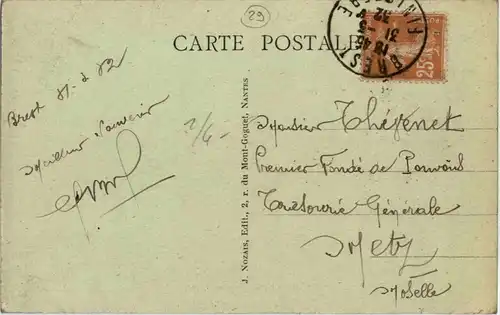 29
CARTE POSTALE
BREST
FINISTERE
18 45
31 - 3
32
25
Brest 31-3 32
Meilleur Souvenir
2/6-
J. Nozais, Edit., 2, r. du Mont-Goguet, Nantes
Monsieur Thévenet
Premier Fondé de Pouvoirs
Trésorerie Générale
Metz
Moselle